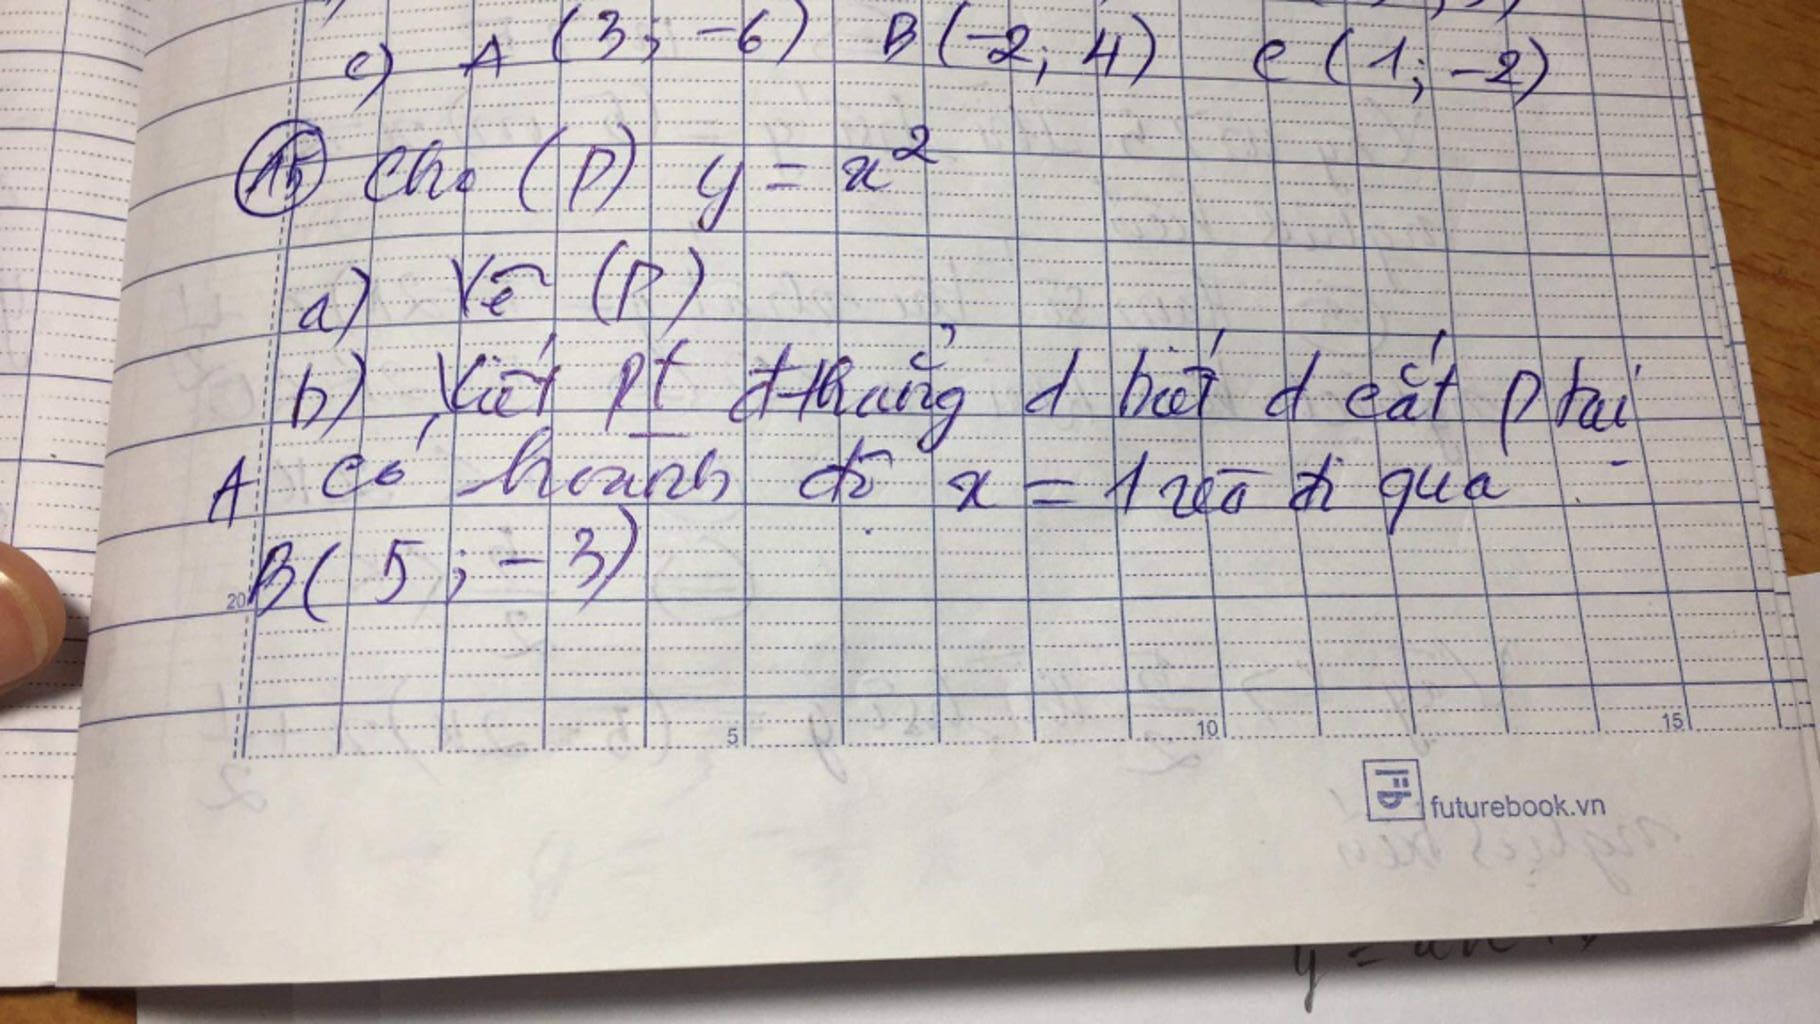 c) A (3; -6) B (-2; 4) C (1; -2)
A5 Cho (P) y = x²
a) Vẽ (P)
b) Viết pt đ thẳng d biết d cắt P tại
A có hoành độ x = 1 và đi qua
B( 5 ; - 3)
20
5 10 15
futurebook.vn